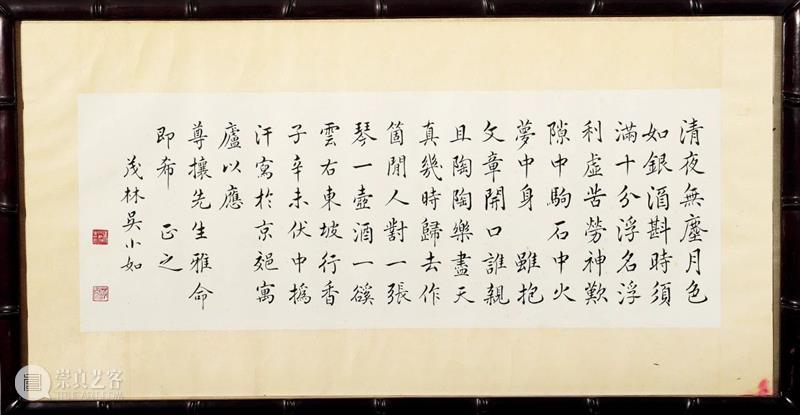 清夜無塵月色
如銀酒斟時須
滿十分浮名浮
利虛苦勞神歎
隙中駒石中火
夢中身 雖抱
文章開口誰親
且陶陶樂盡天
真幾時歸去作
箇閒人對一張
琴一壺酒一谿
雲右東坡行香
子辛未伏中撝
汗寫於京郊寓
廬以應
尊攘先生雅命
即希 正之
茂林吳小如
崇真艺客
THETRUEART.COM